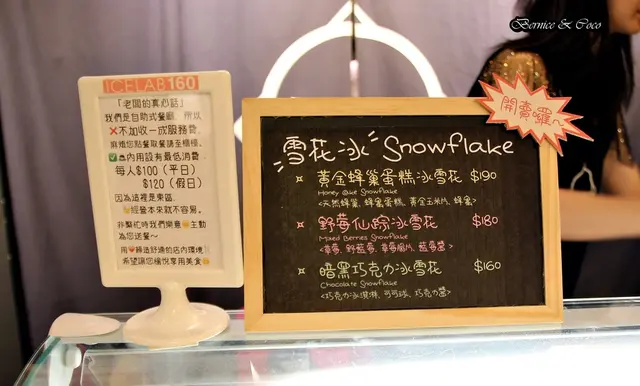 Bernice & Coco
ICELAB160
「老闆的真心話」
我們是自助式餐廳，所以
❌不加收一成服務費
麻煩您點餐取餐請至櫃檯。
✅內用設有最低消費
每人$100（平日）
$120（假日）
因為這裡是東區
經營本來就不容易。
非繁忙時我們樂意主動
為您送餐～
用❤締造舒適的店內環境
希望讓您愉悅享用美食
開賣囉～
雪花冰 Snowflake
黃金蜂巢蛋糕冰雪花 $190
Honey Cake Snowflake
<天然蜂巢、蜂蜜蛋糕、黃金玉米片、蜂蜜>
野莓仙踪冰雪花 $180
Mixed Berries Snowflake
暗黑巧克力冰雪花 $160
Chocolate Snowflake
<巧克力冰淇淋、可可球、巧克力醬>